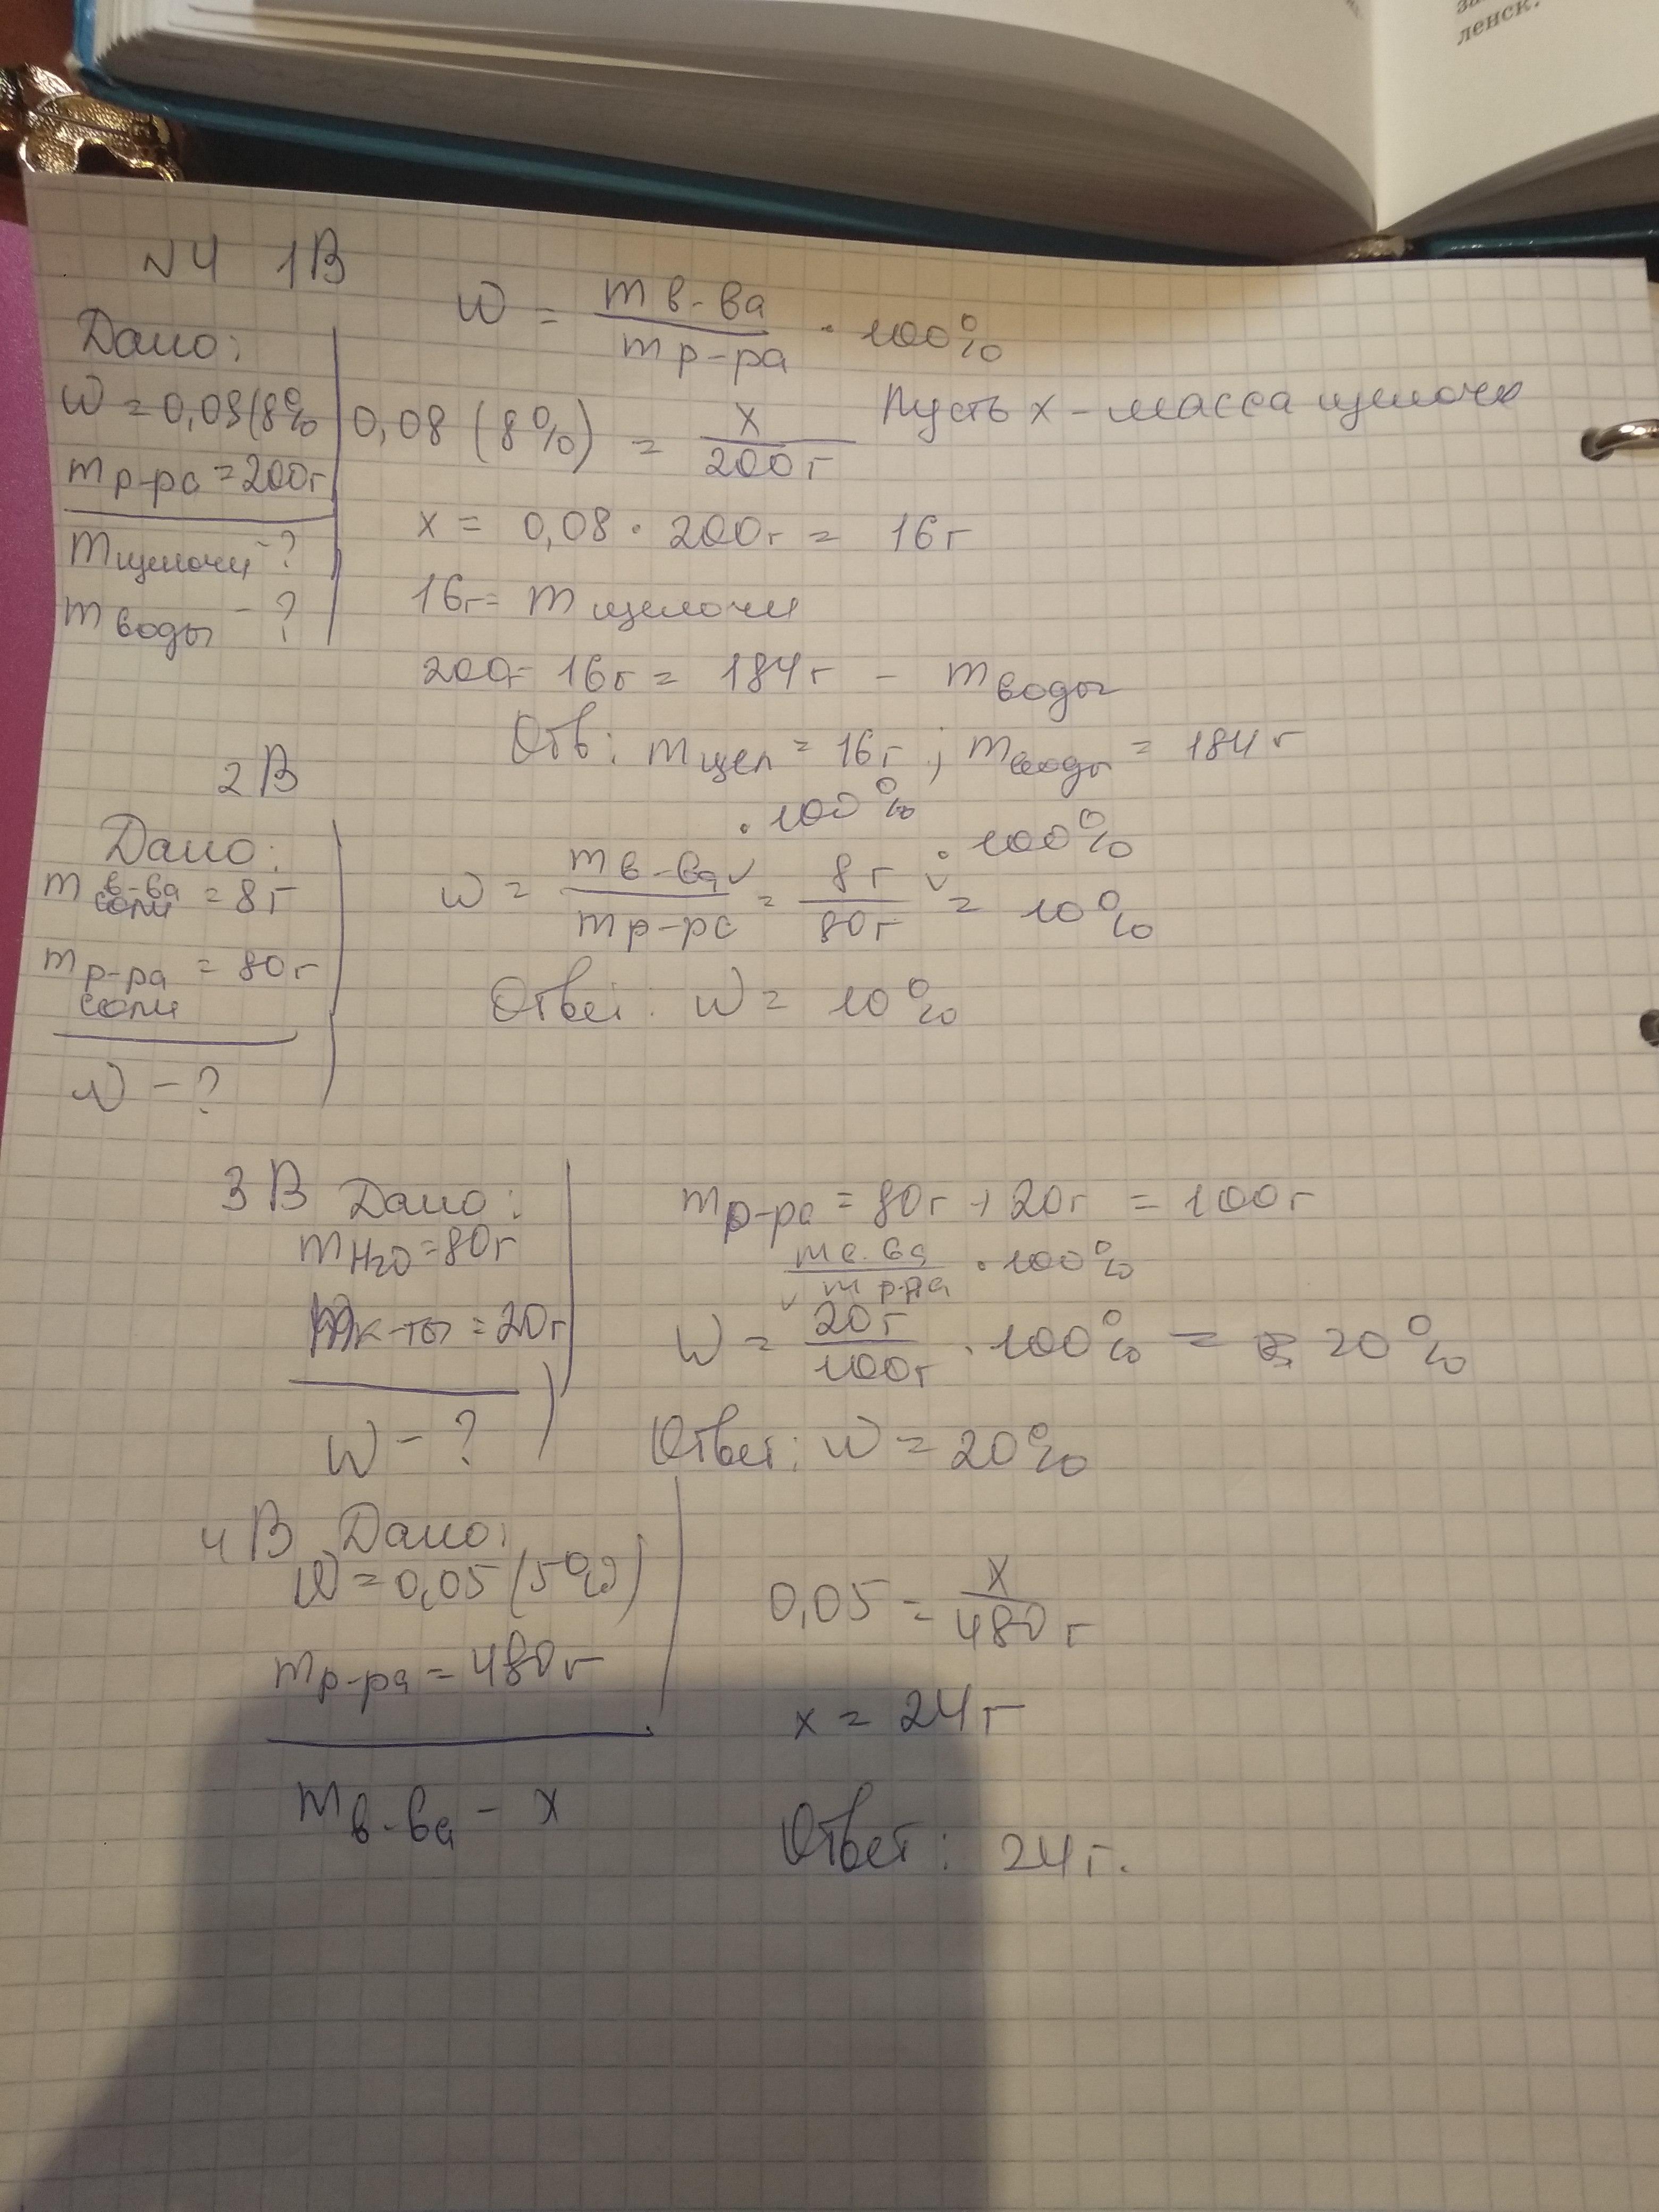 за
ленск.
N4 1В
Дано:
W = 0,08 (8%
m р-ра = 200г
m щелочи - ?
m воды - ?
W = m в-ва / m р-ра · 100%
0,08 (8%) = x / 200г Пусть x - масса щелочи
x = 0,08 · 200г = 16г
16г = m щелочи
200г - 16г = 184г - m воды
Отв: m щел = 16г ; m воды = 184г
2В
Дано:
m в-ва соли = 8г
m р-ра соли = 80г
W - ?
· 100%
W = m в-ва / m р-ра = 8г / 80г · 100% = 10%
Ответ: W = 10%
3В Дано:
m H2O = 80г
m к-ты = 20г
W - ?
m р-ра = 80г + 20г = 100г
m в-ва / m р-ра · 100%
W = 20г / 100г · 100% = 20%
Ответ: W = 20%
4В Дано:
W = 0,05 (5%)
m р-ра = 480г
m в-ва - x
0,05 = x / 480г
x = 24г
Ответ: 24г.